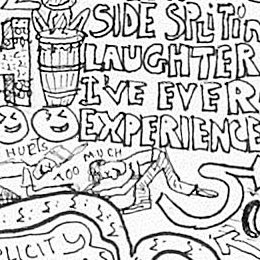 SIDE SPLITIN
LAUGHTER
I'VE EVER
EXPERIENCE
HURTS
TOO MUCH
PLICITY